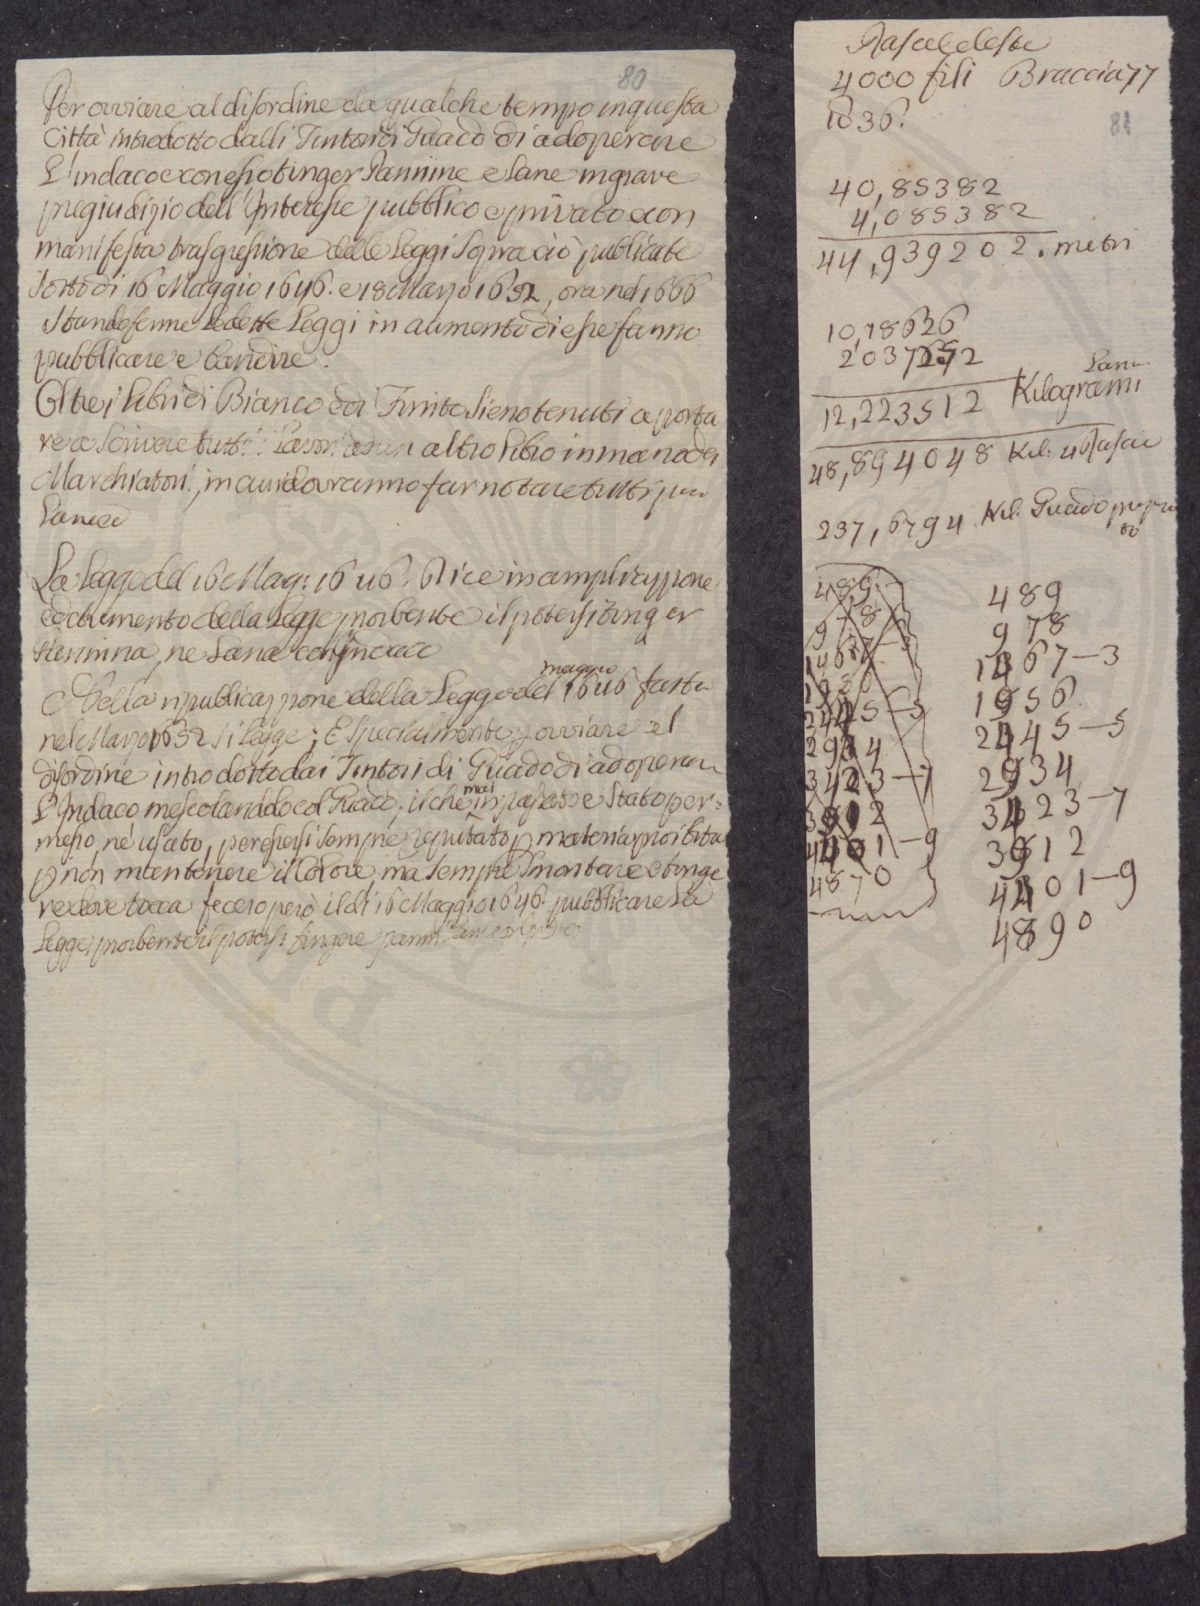 80
Per ovviare al disordine da qualche tempo in questa
Città introdotto dalli Tintori di Guado di adoperare
L'indaco e con esso tinger Pannine e Lane in grave
pregiudizio dell'Interesse pubblico e privato e con
manifesta trasgressione delle Leggi sopra ciò publicate
sotto dì 16 Maggio 1646. e 18 Marzo 1652, ora nel 1666
Stando ferme le dette Leggi in aumento di esse fanno
pubblicare e bandire.
Oltre i libri di Bianco e di Tinto sieno tenuti a porta
re a scrivere tutti i lavori ad un altro libro in mano dei
Marchiatori, in cui dovranno far notare tutti i
La Legge del 16 Mag: 1646. dice in ampliazzione
ed aumento della Legge proibente il potersi tinger
Pannina, ne Lana con Indaco
Nella ripublicazzione della Legge del maggio 1646 fatta
nel Marzo 1652 si legge; E specialmente p ovviare al
disordine introdotto dai Tintori di Guado di adoperare
L'Indaco mescolandolo col Guado, il che mai in passato è stato per=
messo, nè usato, per essersi sempre reputato p materia proibita
p non mantenere il Colore, ma sempre smontare e tinge
re dove tocca fecero però il dì 16 Maggio 1646. pubblicare La
Legge, proibente il potersi tingere panni
81
Rascie celeste
4000 fili Braccia 77
1036.
40,85382
4,085382
44,939202. metri
10,18626
2037252
Lana
12,223512 Kilogrammi
48,894048 Kil. 4 Rascie
237,6794 Kil. Guado
489
978
1467-3
1956
2445-5
2934
3423-7
3912
4401-9
4890
489
978
1467-3
1956
2445-5
2934
3423-7
3912
4401-9
4890